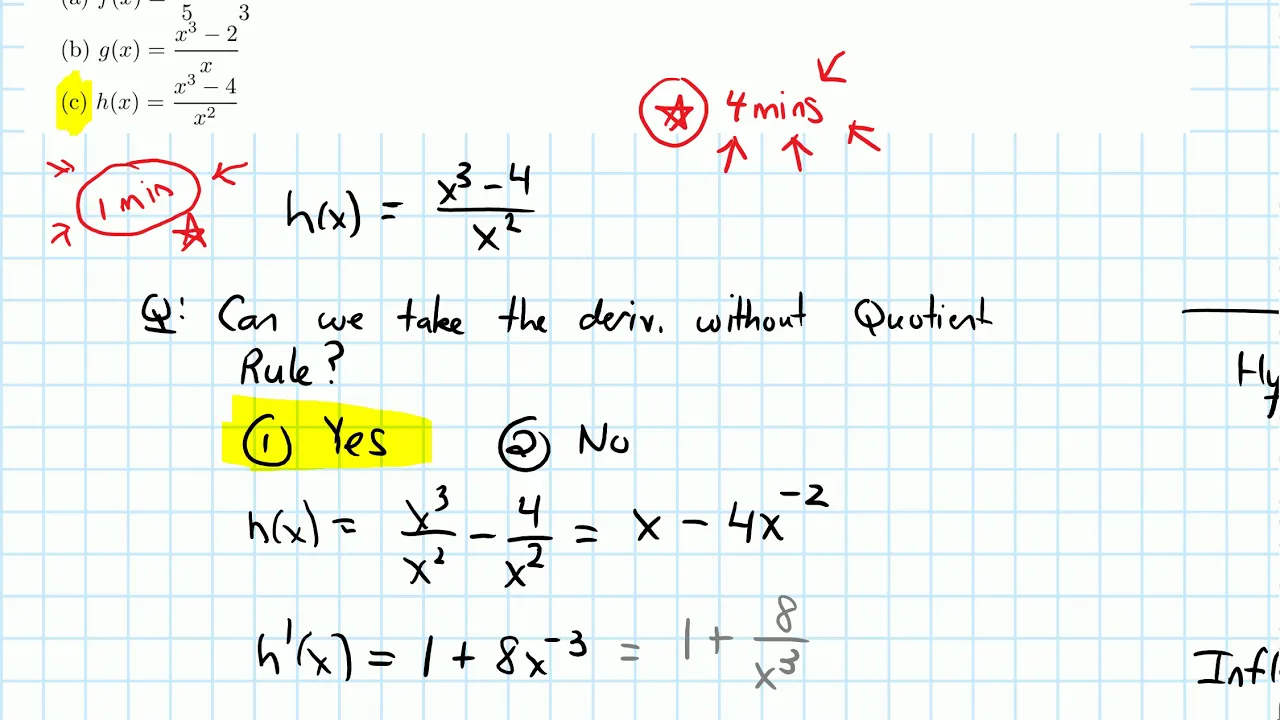 5 3
(b) g(x) = \frac{x^3 - 2}{x}
(c) h(x) = \frac{x^3 - 4}{x^2}
4 mins
1 min
h(x) = \frac{x^3 - 4}{x^2}
Q: Can we take the deriv. without Quotient
Rule?
① Yes ② No
h(x) = \frac{x^3}{x^2} - \frac{4}{x^2} = x - 4x^{-2}
h'(x) = 1 + 8x^{-3} = 1 + \frac{8}{x^3}